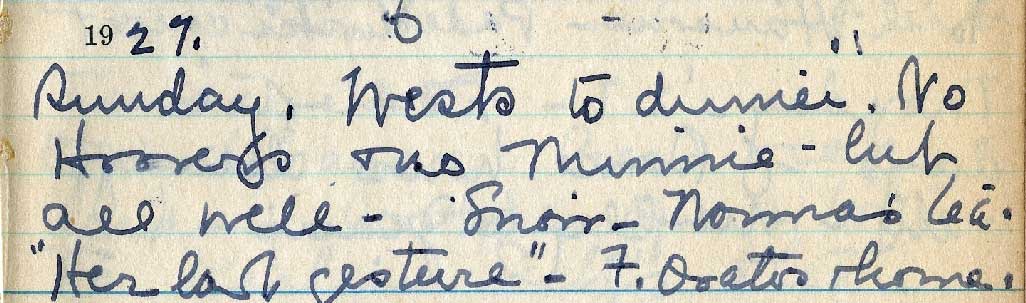 1927.
Sunday. Wests to dinner. No
Hoovers no Minnie - but
all well - Snow - Norma's tea.
"Her last gesture" - F. home.